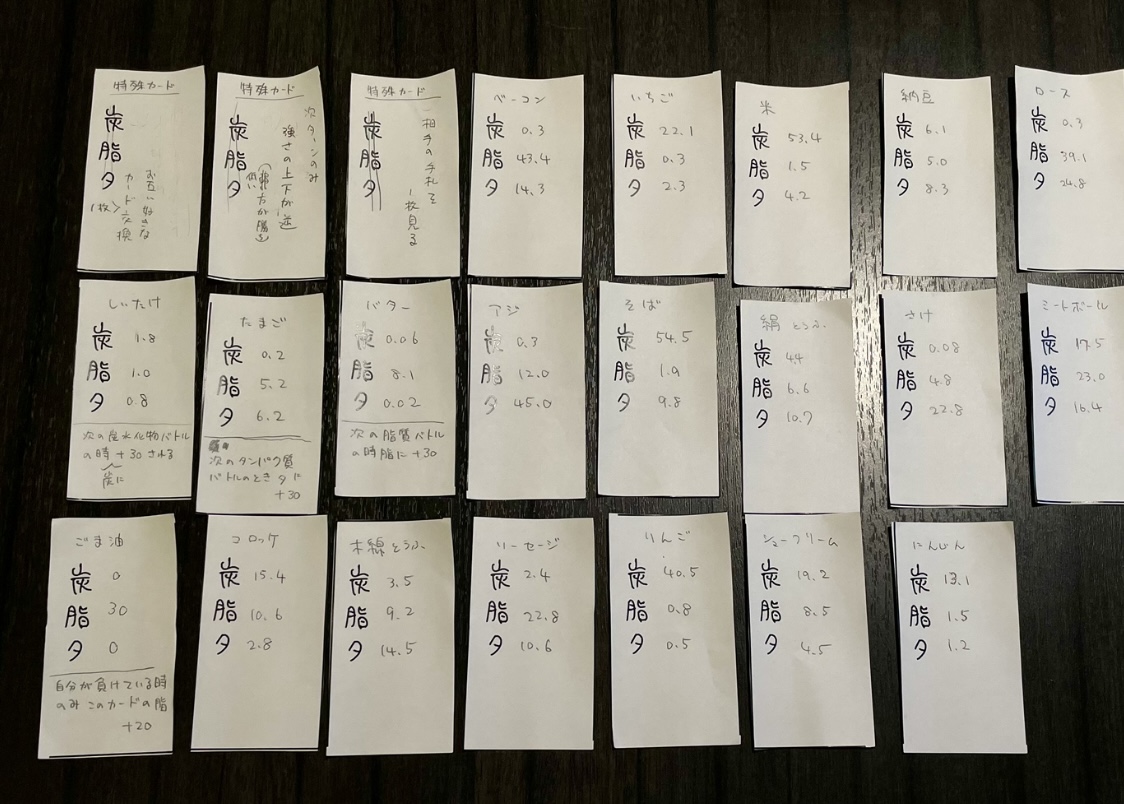 特殊カード
炭
脂
タ
お互い好きな
カード交換
(1枚)
特殊カード
炭
脂
タ
次ターンのみ
強さの上下が逆
(低い方が勝ち)
特殊カード
炭
脂
タ
相手の手札を
一枚見る
ベーコン
炭 0.3
脂 43.4
タ 14.3
いちご
炭 22.1
脂 0.3
タ 2.3
米
炭 53.4
脂 1.5
タ 4.2
納豆
炭 6.1
脂 5.0
タ 8.3
ロース
炭 0.3
脂 39.1
タ 24.8
しいたけ
炭 1.8
脂 1.0
タ 0.8
次の炭水化物バトル
の時 +30される
炭に
たまご
炭 0.2
脂 5.2
タ 6.2
次のタンパク質
バトルのとき タに
+30
バター
炭 0.06
脂 8.1
タ 0.02
次の脂質バトル
の時脂に +30
アジ
炭 0.3
脂 12.0
タ 45.0
そば
炭 54.5
脂 1.9
タ 9.8
絹とうふ
炭 4.4
脂 6.6
タ 10.7
さけ
炭 0.08
脂 4.8
タ 22.8
ミートボール
炭 17.5
脂 23.0
タ 16.4
ごま油
炭 0
脂 30
タ 0
自分が負けている時
のみ このカードの脂
+20
コロッケ
炭 15.4
脂 10.6
タ 2.8
木綿とうふ
炭 3.5
脂 9.2
タ 14.5
ソーセージ
炭 2.4
脂 22.8
タ 10.6
りんご
炭 40.5
脂 0.8
タ 0.5
シュークリーム
炭 19.2
脂 8.5
タ 4.5
にんじん
炭 13.1
脂 1.5
タ 1.2